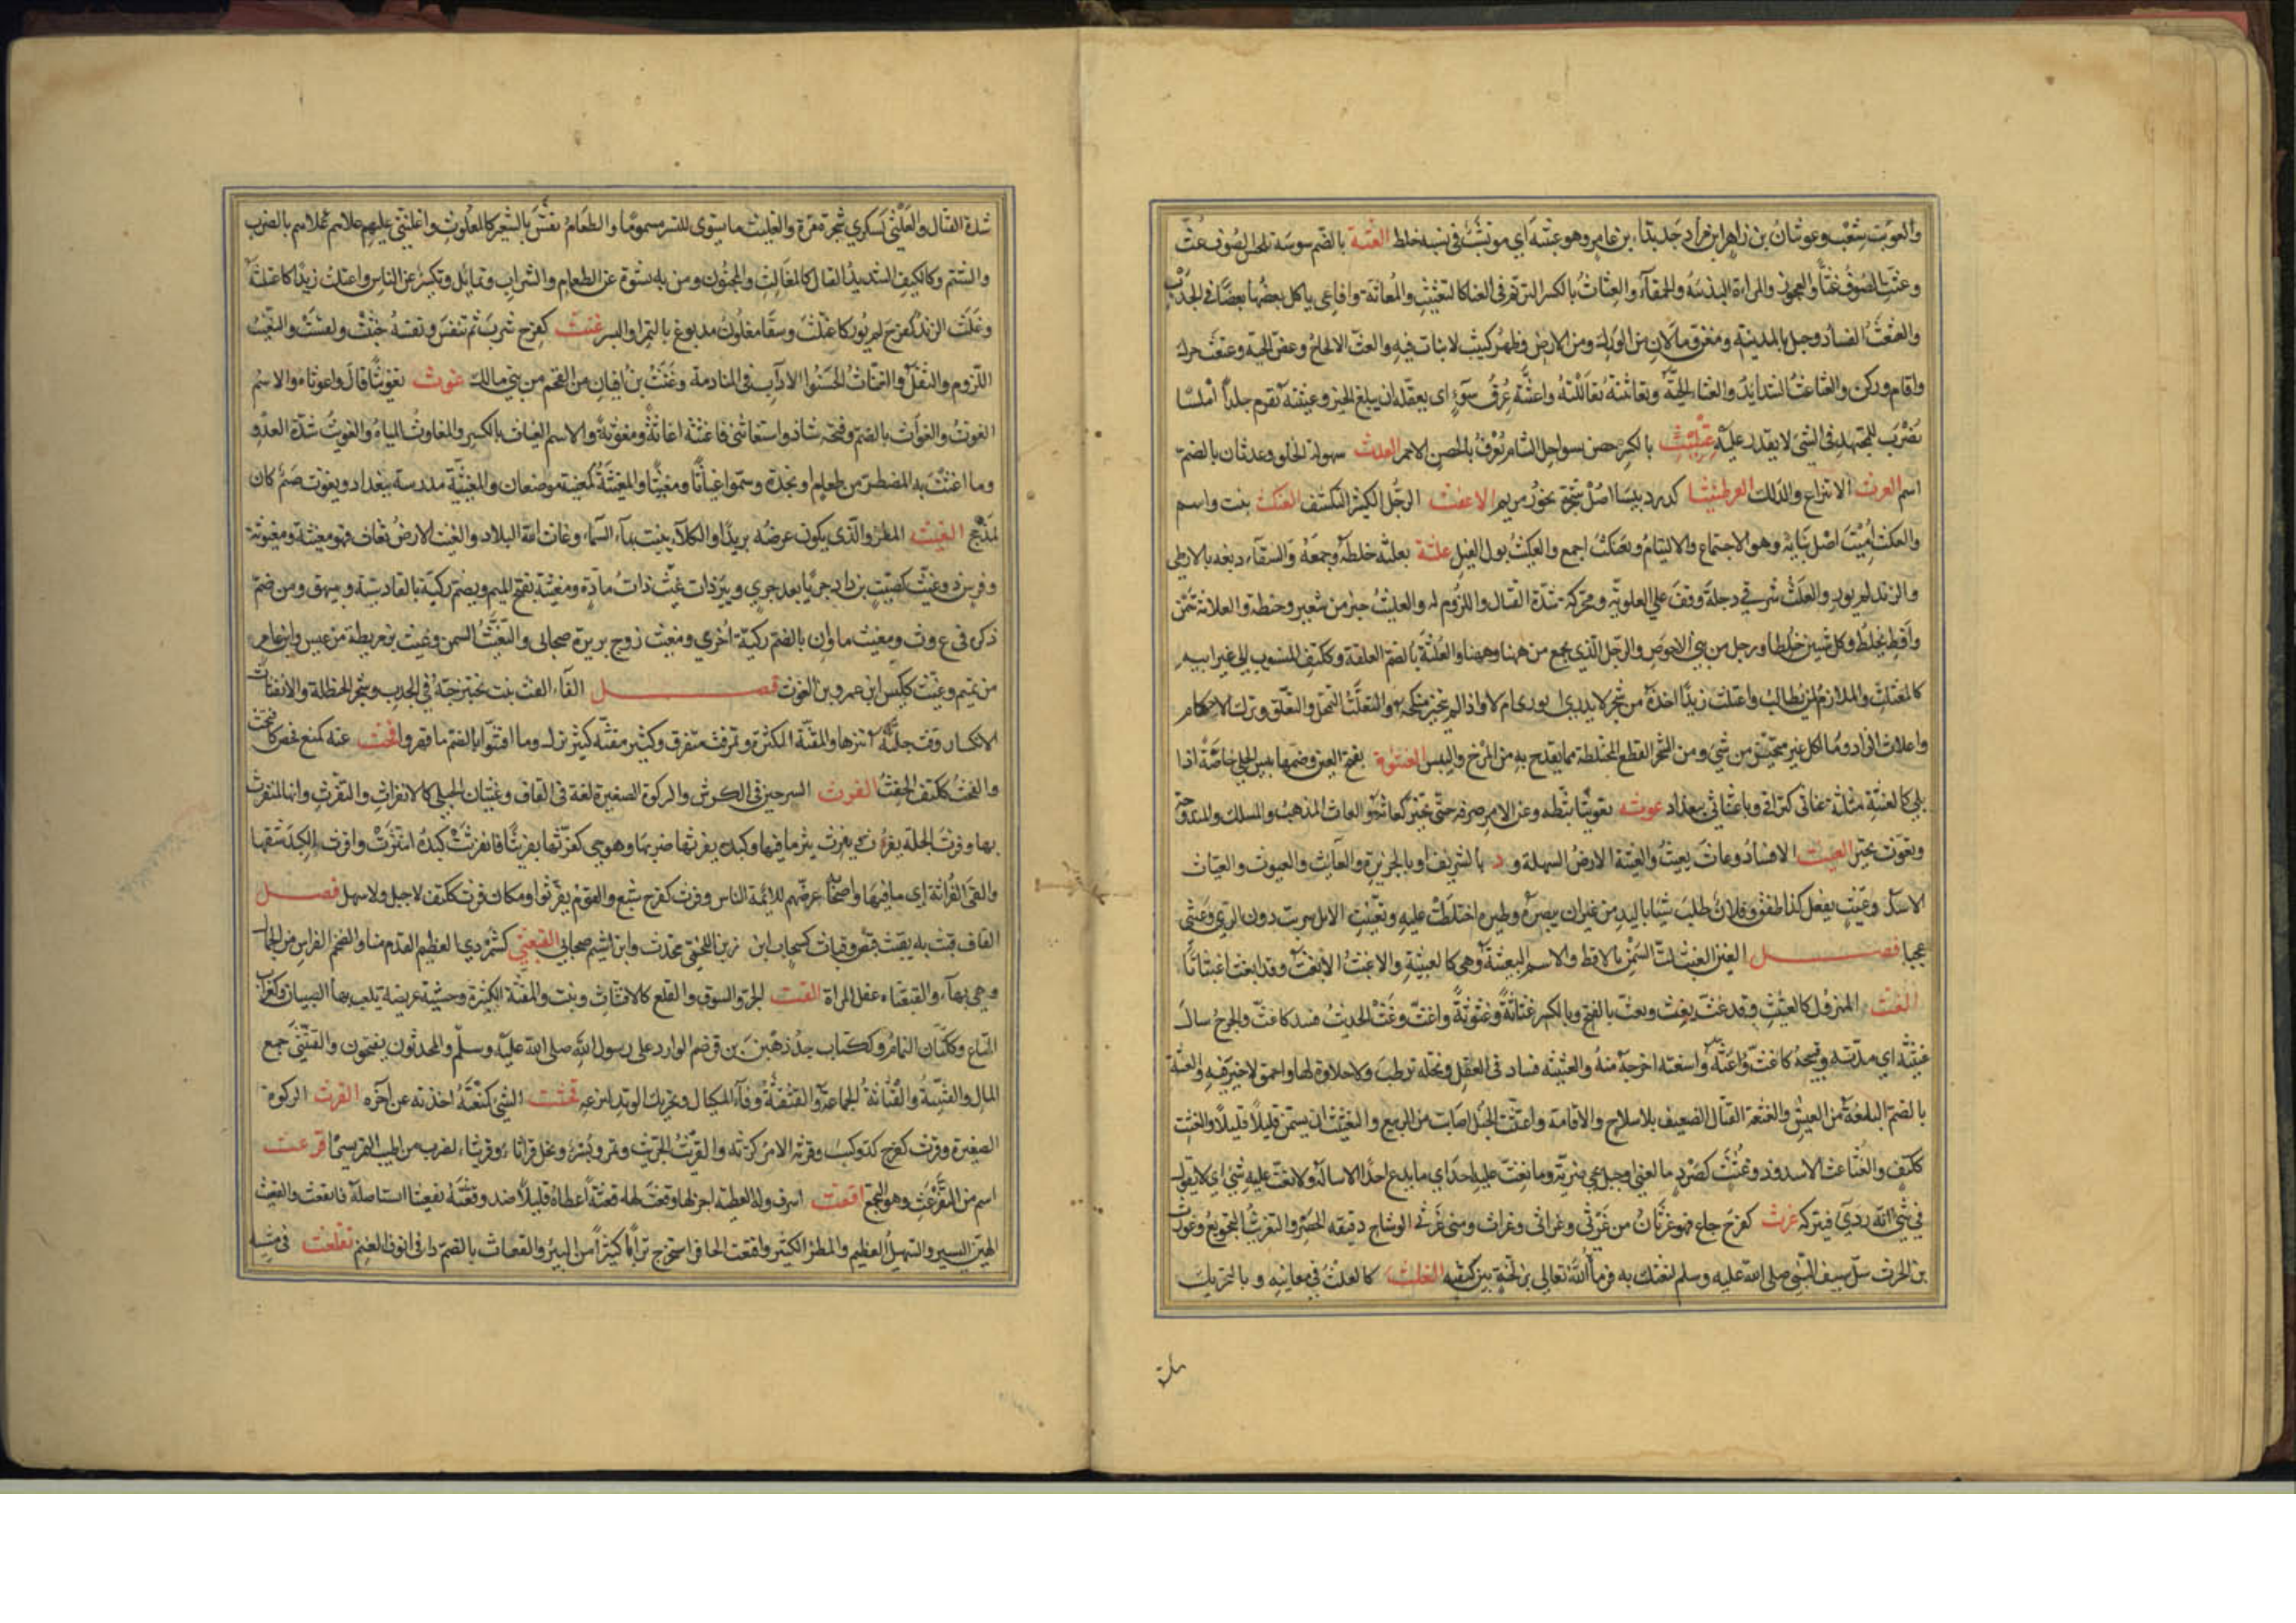 بن عامر وهو عبثة اي موتشب في نسبه خلط العثة بالضم سوسة تلحس الصوف عث
وعثت الصوف عثا والعجوز والمراة البذية والحمقاء والعثاث بالكسر الترنم في الغنا كالتعثيث والمعاثة وافاعي ياكل بعضها بعضا في الجدب
والعثعث الفساد وجبل بالمدينة ومغن وما لان من الورك ومن الارض وظهر كثيب لا نبات فيه والعث الالحاح وعض الحية وعثعث حرك
واقام وركن والعثاعث الشدايد والعثاء الحية وتعاثثته تعاللته واعتثه عرق سوء اي تعقله ان يبلغ الخير وعثيثة تقرم جلدا املسا
يضرب للمجتهد في الشئ لا يقدر عليه عثليث بالكسر حصن بسواحل الشام يعرف بالحصن الاحمر العدث سهولة الخلق وعدثان بالضم
اسم العرث الانتزاع والدلك العرطنيثا اصل شجرة بخور مريم الاعفث الرجل الكثير التكشف العنكث بنت واسم
والعكث اميت اصل بنائه وهو الاجتماع والالتيام وتعنكث اجتمع والعيكث بول الفيل علثه يعلثه خلطه وجمعه والسقاء دبغه بالارطى
والزند لم يور والعلث قرية شرقي دجلة وقف على العلوية ومحركة شدة القتال واللزوم له والعليث خبز من شعير وحنطة والعلاثة سمن
واقط يخلط وكل شيئين خلطا ورجل من بني الاحوص والرجل الذي يجمع من ههنا وههنا والعلثة بالضم العلقة وككتف المنسوب الى غير ابيه
كالمعتلث والملازم لمن يطالب واعتلث زندا اخذه من شجر لا يدري ايوري ام لا واذا لم يتخير منكحه والتعلث التمحل والتعلق وترك الاحكام
واعلاث الزاد وما اكل غير متخير من شئ ومن الشجر القطع المختلطة مما يقدح به من المرخ واليبس العنثوة بفتح العين وضمها يبيس الحلي خاصة اذا
بلي كالعنثة مثلثة عناثي كتراقي وباعثاثي ببغداد عوثه تعويثا ثبطه وعن الامر صرفه حتى تحير كعاثه والعاث المذهب والمسلك والمندوحة
وتعوث تحير العيث الافساد وعاث يعيث والعيثة الارض السهلة ود بالشريف او بالجزيرة والعايث والعيوث والعياث
الاسد وعيث يفعل كذا طفق وفلان طلب شيئا باليد من غير ان يبصره وطيره اختلطت عليه وتعيثت الابل شربت دون الري وعيثى
عجبا فصل الغين الغبث لت السمن بالاقط والاسم الغبيثة وهي كالعبيثة والاغبث الابغث وقد اغبث اغبثاثا
الغث المهزول كالغثيث وقد غث يغث ويغث بالفتح وبالكسر غثاثة وغثوثة واغث وغث الحديث فسد كاغث والجرح سال
غثيثه اي مدته وقيحه كاغث واغثه واستغثه اخرجه منه والغثيثة فساد في العقل ونخلة ترطب ولا حلاوة لها واحمق لا خير فيه والغثة
بالضم البلغة من العيش والغثغثة القتال الضعيف بلا سلاح والاقامة واغتثت الخيل اصابت من الربيع والتغثيث ان يسمن قليلا قليلا والغثث
ككتف والغثاغث الاسد وذو غثث كصرد ما لغني وجبل بحمى ضرية وما يغث عليه احد اي ما يدع احدا الا ساله ولا يغث عليه شئ اي لا يقول
في شئ انه ردي فيتركه غرث كفرح جاع فهو غرثان من غرثى وغراثى وغراث وهي غرثى الوشاح دقيقة الخصر والتغريث التجويع وغورث
بن الحرث سل سيف النبي صلى الله عليه وسلم ليفتك به فرماه الله تعالى بزلخة بين كتفيه الغلث كالعلث في معانيه وبالتحريك
شدة القتال والغلثى كسكرى شجرة مرة والغليث ما يسوى للنسر مسموما والطعام يغش بالشعير كالمغلوث واغلنثى عليهم علاهم بالضرب
والشتم وككتف الشديد القتال كالمغالث والمجنون ومن به نشوة عن الطعام والشراب وتمايل وتكسر عن النعاس واغتلث زيدا كاعتلثه
وغلث الزند كفرح لم يور كاغتلث وسقا مغلوث مدبوغ بالتمر او البسر غنث كفرح شرب ثم تنفس ونفسه خبثت ولقست والتغنث
اللزوم والثقل والغناث الحسنوا الاداب في المنادمة وغنث بن افيان من القحم من بني مالك غوث تغويثا قال واغوثاه والاسم
الغوث والغواث بالضم وفتحه شاذ واستغاثني فاغثته اغاثة ومغوثة والاسم الغياث بالكسر والمغاوث المياه والغويث شدة العدو
وما اغثت به المضطر من طعام او نجدة وسموا غياثا ومغيثا والمغيثة كمعينة موضعان والمغيثية مدرسة ببغداد ويغوث صنم كان
لمذحج الغيث المطر والذي يكون عرضه بريدا والكلا ينبت بماء السماء وغاث الله البلاد والغيث الارض تغاث فهي مغيثة ومغيوثة
وفرس ذو غيث كصيب يزداد جريا بعد جري وبئر ذات غيث ذات مادة ومغيثة بفتح الميم ويضم ركية بالقادسية وة ببيهق ومن ضم
ذكره في غ و ث ومغيث ماوان بالضم ركية اخرى ومغيث زوج بريرة صحابي والتغيث السمن وغيث بن مريطة من عبس وابن عامر
من تميم وغيث ككيس ابن عمرو بن الغوث فصل الفاء الفث نبت يختبز حبه في الجدب وشجر الحنظل والانفثاث
الانكسار وفث جلته نثرها والمفثة الكثرة وتمر فث متفرق وكثير مفثة كثير نزل وما افتثوا بالضم ما قهروا فحث عنه كمنع فحص كافتحث
والفحث ككتف الحفث الفرث السرجين في الكرش والركوة الصغيرة لغة في القاف وغثيان الحبلى كالانفراث والتفرث وانها لمنفرث
بها وفرث الجلة يفرث ويفرث ينثر ما فيها وكبده يفرثها ضربها وهو حي كفرثها تفريثا فانفرثت كبده انتثرت وافرث الكبد شقها
والقى الفراثة اي ما فيها واصحابه عرضهم للائمة الناس وفرث كفرح شبع والقوم تفرقوا ومكان فرث ككتف لا جبل ولا سهل فصل
القاف قبث به يقبث قبض وقباث كسحاب ابن رزين اللخمي محدث وابن اشيم صحابي القبعثى كشمردى العظيم القدم منا والضخم الفراسن من الجمال
وهي بهاء والقبعثاه عفل المراة القث الجر والسوق والقلع كالاقتثاث ونبت والمقثة الكثرة وخشبة عريضة تلعب بها الصبيان وكغراب
المتاع وككتان النمام وككتاب جد زهبن بن قرضم الوارد على رسول الله صلى الله عليه وسلم والمحدثون يفتحون والقثيثى جمع
المال والقثيثة والقثاثة الجماعة والقثقثة وفاء المكيال وتحريك الوتد لنزعه قحثت الشئ كمنعته اخذته عن اخره القرث الركوة
الصغيرة وقرث كفرح كد وكسب وقرثه الامر كرثه والقريث الجريث وتمر وبسر ونخل قراثاء وقريثاء لضرب من اطيب التمر بسرا قرعث
اسم من التقرعث وهو التجمع اقعث اسرف وله العطية اجزلها وقعث له قعثة اعطاه قليلا ضد وقعثه تقعيثا استاصله فانقعث والقعيث
الهين اليسير والسهيل العظيم والمطر الكثير واقعث الحافر استخرج ترابا كثيرا من البئر والقعاث بالضم دا في انوف الغنم تقلعث في مشيه